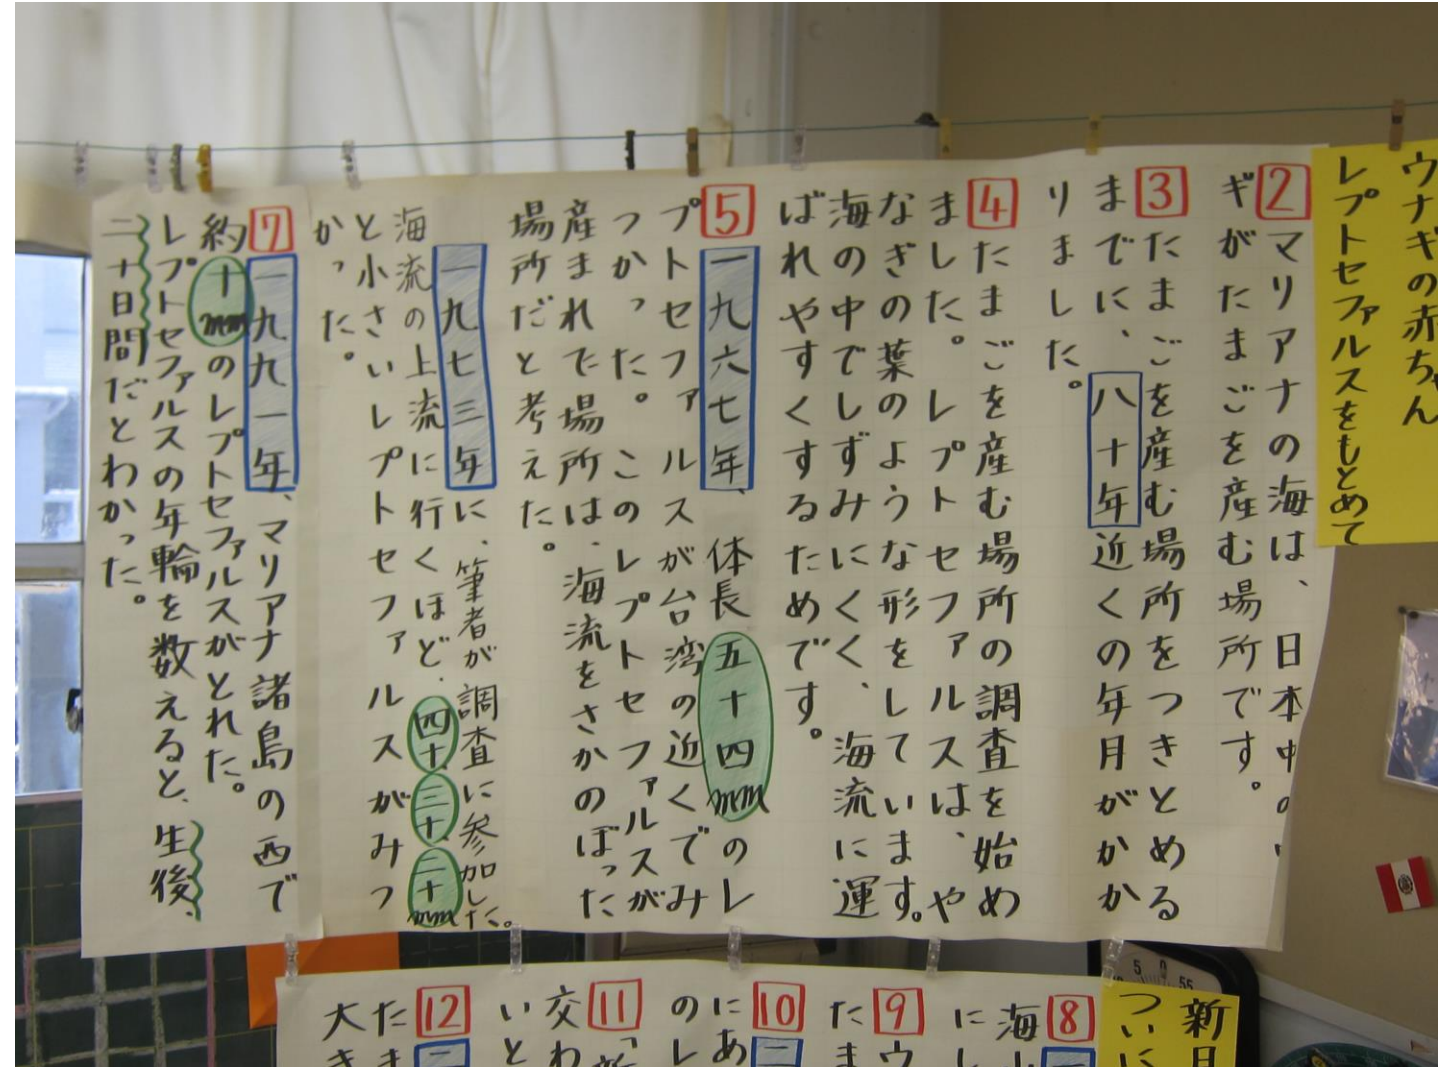 ウナギの赤ちゃん
レプトセファルスをもとめて
2 マリアナの海は、日本中の
ギがたまごを産む場所です。
3 たまごを産む場所をつきとめる
までに、八十年近くの年月がかか
りました。
4 たまごを産む場所の調査を始め
ました。レプトセファルスは、や
なぎの葉のような形をしています。
海の中でしずみにくく、海流に運
ばれやすくするためです。
5 一九六七年、体長五十四mmのレ
プトセファルスが台湾の近くでみ
つかった。このレプトセファルスが
産まれて場所は、海流をさかのぼった
場所だと考えた。
一九七三年に、筆者が調査に参加した。
海流の上流に行くほど、四十三十二十mm
と小さいレプトセファルスがみつ
かった。
7 一九九一年、マリアナ諸島の西で
約十mmのレプトセファルスがとれた。
レプトセファルスの年輪を数えると、生後、
二十日間だとわかった。
新日
ついに
8 一
海山
にし
9 ウ
たま
10 二
にあ
のレ
11
交わ
いと
12 二
たま
大き
5 0 55